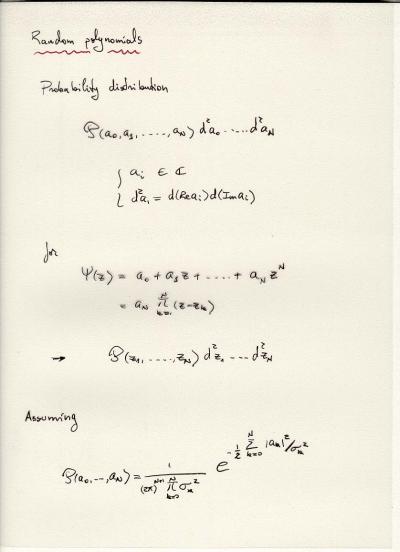 Random polynomials
Probability distribution
P(a₀,a₁,.....,a_N) d²a₀.....d²a_N
{ aᵢ ∈ ℂ
{ d²aᵢ = d(Re aᵢ) d(Im aᵢ)
for
Ψ(z) = a₀ + a₁z + ..... + a_N z^N
= a_N ∏_{k=1}^{N} (z-z_k)
→ P(z₁,.....,z_N) d²z₁ ... d²z_N
Assuming
P(a₀,...,a_N) = 1/((2π)^{N+1} ∏_{k=0}^{N} σ_k²) e^{-1/2 ∑_{k=0}^{N} |a_k|²/σ_k²}